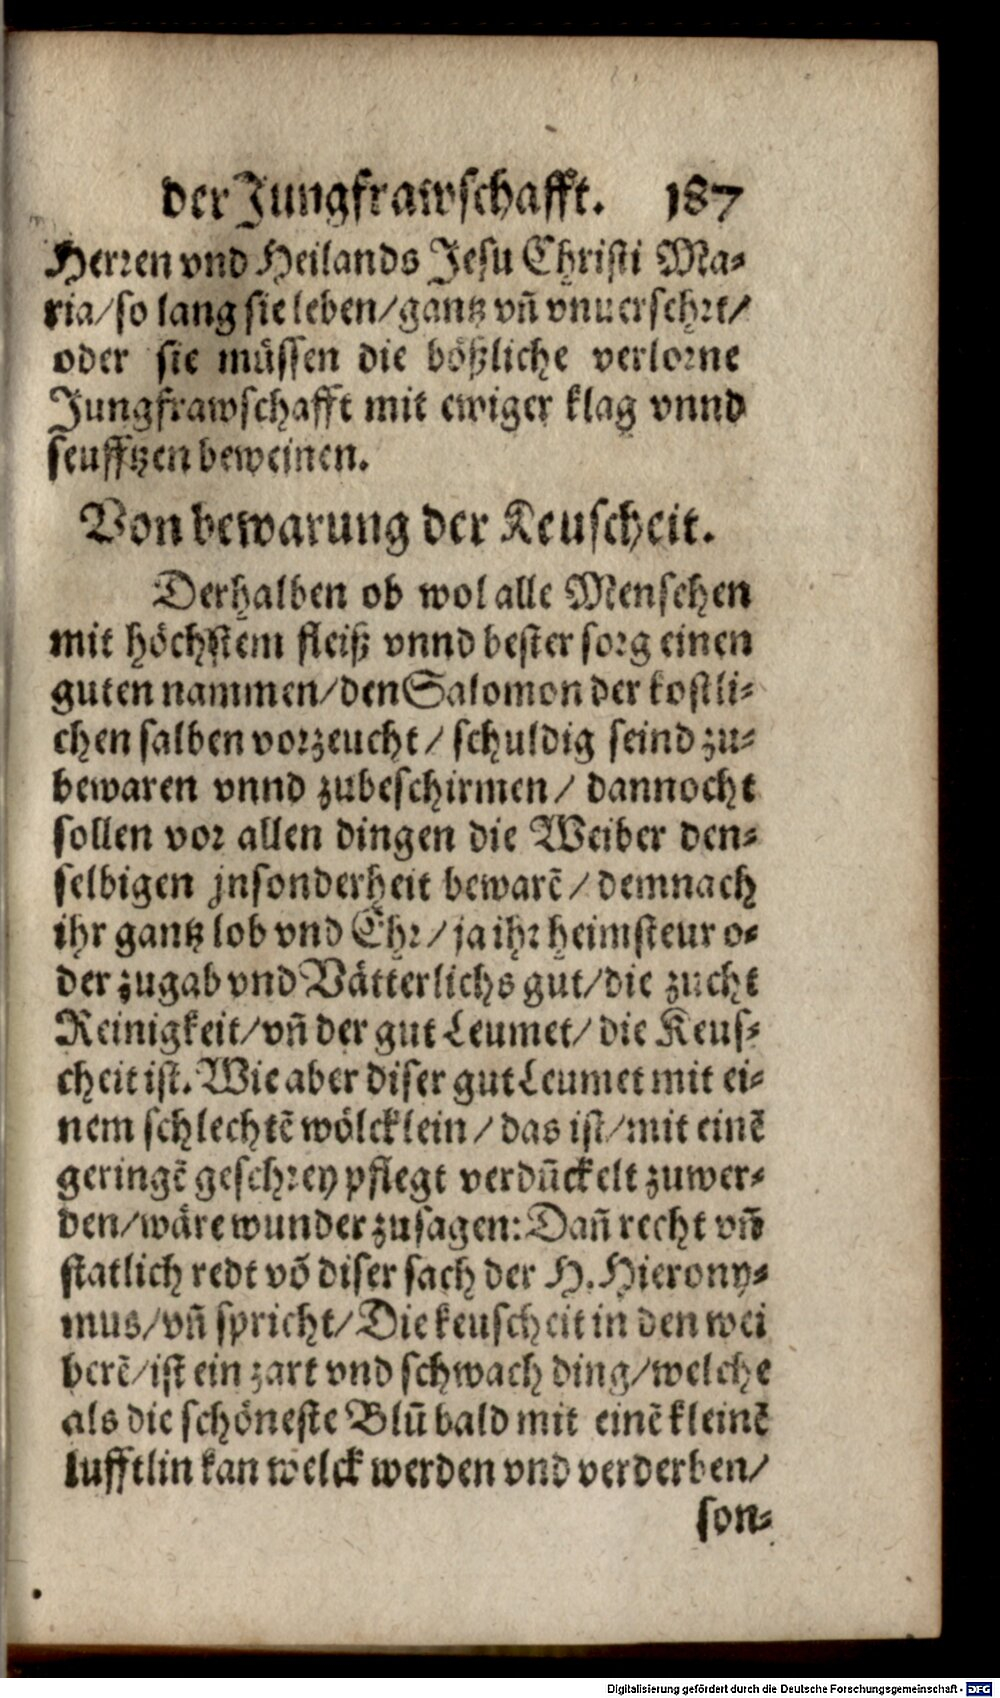 der Jungfrawschafft. 187
Herren vnd Heilands Jesu Christi Ma-
ria/so lang sie leben/gantz vn̄ vnuersehrt/
oder sie müssen die bößliche verlorne
Jungfrawschafft mit ewiger klag vnnd
seufftzen beweinen.
Von bewarung der Keuscheit.
Derhalben ob wol alle Menschen
mit höchstem fleiß vnnd bester sorg einen
guten nammen/den Salomon der kostli-
chen salben vorzeucht/ schuldig seind zu-
bewaren vnnd zubeschirmen/ dannocht
sollen vor allen dingen die Weiber den-
selbigen jnsonderheit bewarē/demnach
ihr gantz lob vnd Ehr/ja ihr heimsteur o-
der zugab vnd Vätterlichs gut/die zucht
Reinigkeit/vn̄ der gut Leumet/die Keus-
cheit ist. Wie aber diser gut Leumet mit ei-
nem schlechtē wölcklein/das ist/mit einē
geringē geschrey pflegt verdūckelt zuwer-
den/wäre wunder zusagen: Dan̄ recht vn̄
statlich redt vō diser sach der H. Hierony-
mus/vn̄ spricht/Die keuscheit in den wei
berē/ist ein zart vnd schwach ding/welche
als die schöneste Blū bald mit einē kleinē
lufftlin kan welck werden vnd verderben/
son-
Digitalisierung gefördert durch die Deutsche Forschungsgemeinschaft - DFG